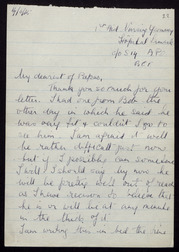 9/1/45
22
1st Fd. Nursing Yeomanry
Hospital
C/O S19 A.P.O.
B.E.F.
My dearest of Papas,
Thank you so much for your
letter. I had one from Bob the
other day in which he said he
was very fit & couldn't I go to
see him. I am afraid it will
be rather difficult just now
but if I possibly can sometime
I shall. I should say by now he
will be pretty well out of
as I have reason to believe that
he is or will be at any minute
in the thick of it.
I am writing this in bed the nice